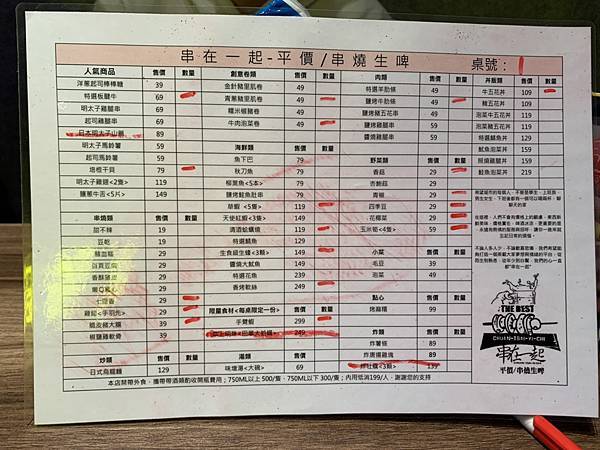 串在一起-平價/串燒生啤 桌號:
人氣商品 售價 數量 創意卷類 售價 數量 肉類 售價 數量 丼飯類 售價 數量
洋蔥起司棒棒糖 39 金針豬里肌卷 49 特選羊肋條 49 牛五花丼 109
特選板腱牛 69 青蔥豬里肌卷 49 鹽烤牛肋條 49 豬五花丼 109
明太子雞腿串 69 糯米椒豬卷 49 鹽烤豬五花串 49 泡菜牛五花丼 119
起司雞腿串 69 牛肉泡菜卷 49 鹽烤雞腿串 59 泡菜豬五花丼 119
日本明太子山藥 89 醬燒雞腿串 59 特選鯖魚丼 129
明太子馬鈴薯 59 海鮮類 售價 數量 魷魚泡菜丼 159
起司馬鈴薯 59 魚下巴 79 野菜類 售價 數量 照燒雞腿丼 159
培根干貝 79 秋刀魚 79 香菇 29 鮭魚泡菜丼 219
明太子雞翅<2隻> 119 柳葉魚<5本> 79 杏鮑菇 29
鹽蔥牛舌<5片> 149 鹽烤鮭魚肚串 79 青椒 29
草蝦<5隻> 119 四季豆 29
串燒類 售價 數量 天使紅蝦<3隻> 149 花椰菜 29
甜不辣 19 清酒蛤蠣燒 119 玉米筍<4隻> 59
豆乾 19 特選鯖魚 129
豬血糕 29 生食級生蠔<3顆> 149 小菜 售價 數量
百頁豆腐 29 醬燒大魷魚 149 毛豆 39
香酥豬皮 29 特選花魚 239 泡菜 49
29 香烤軟絲 249
七里香 29 點心 售價 數量
雞翅<手羽先> 29 限量食材<每桌限定一份> 售價 數量 烤麻糬 99
脆皮豬大腸 39 手臂蝦 299
椒鹽雞軟骨 39 249 炸類 售價 數量
炸薯條 89
炒類 售價 數量 湯類 售價 數量 炸唐揚雞塊 89
日式烏龍麵 129 味增湯<大碗> 69 炸牡蠣<3顆> 139
THE BEST
CHUAN-TSAI-YI-CHI
串在一起
平價/串燒生啤
本店禁帶外食，攜帶帶酒類酌收開瓶費用；750ML以上 500/隻、750ML以下 300/隻；內用低消199/人，謝謝您的支持